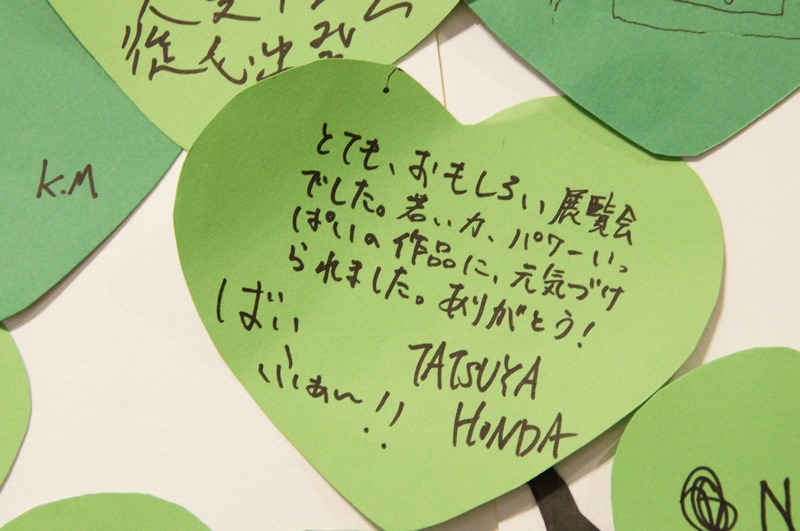 K.M
とても、おもしろい展覧会
でした。若い力、パワーいっ
ぱいの作品に、元気づけ
られました。ありがとう!
ばい
ふぁい!!
TATSUYA
HONDA
N